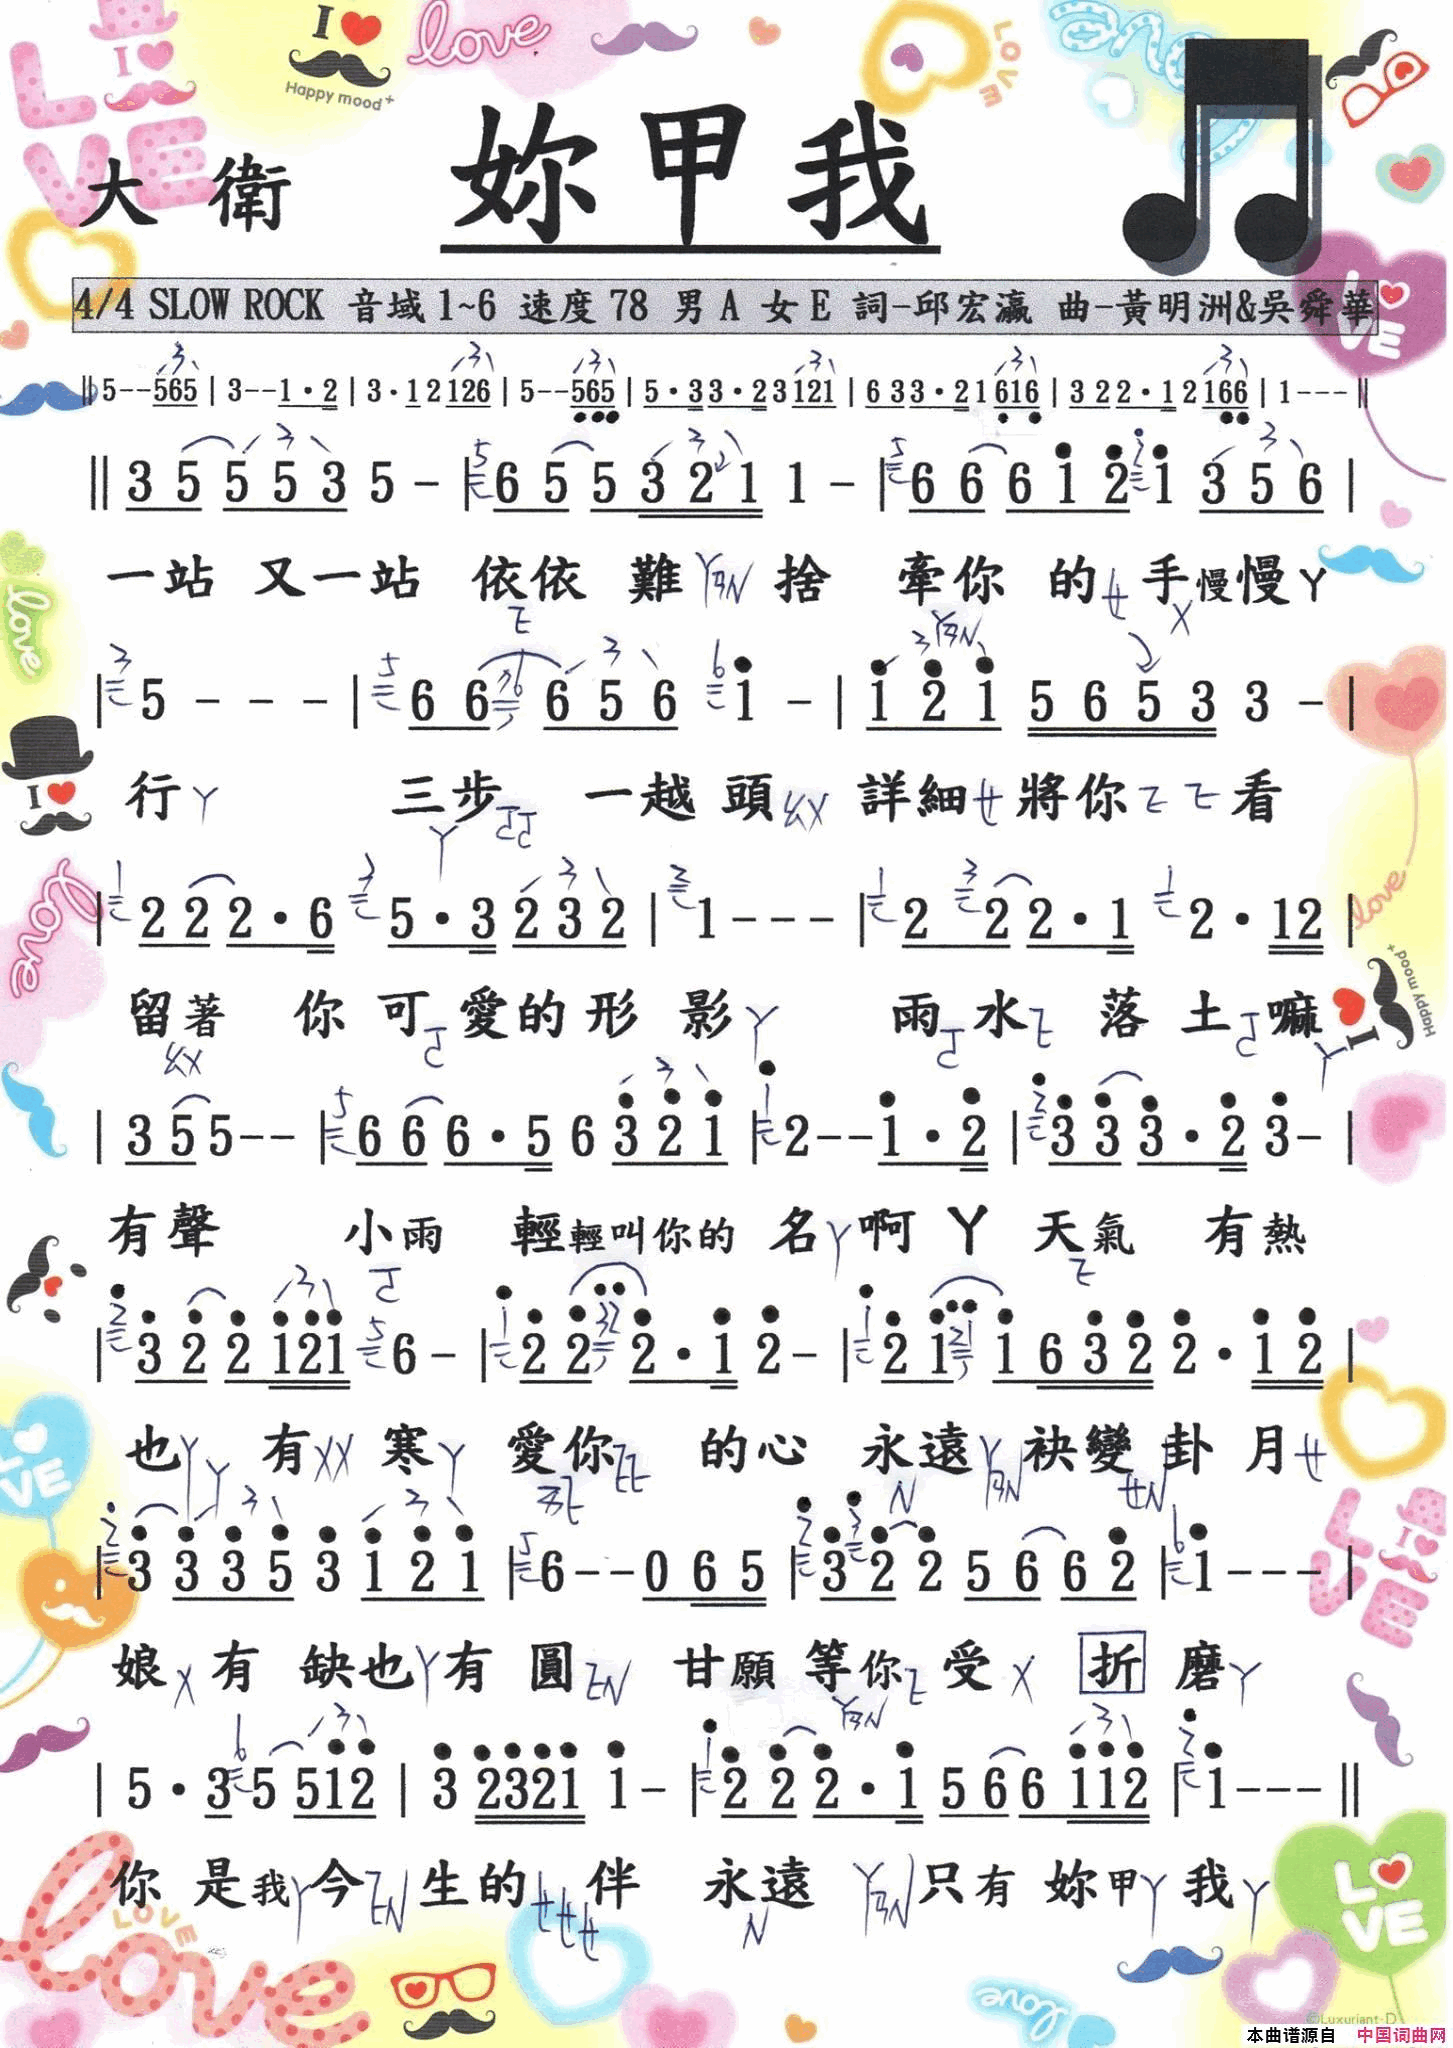 I
Happy mood+
love
LOVE
大衛 妳甲我
4/4 SLOW ROCK 音域1~6 速度78 男A 女E 詞-邱宏瀛 曲-黃明洲&吳舜華
‖5--565|3--1·2|3·12126|5--565|5·33·23121|633·21616|322·12166|1---‖
‖3 5 5 5 3 5 -|6 5 5 3 2 1 1 -|6 6 6 1 2 1 3 5 6|
一站 又一站 依依 難 捨 牽你 的 手慢慢ㄚ
|5 - - -|6 6 6 5 6 1 -|1 2 1 5 6 5 3 3 -|
行 三步 一越 頭 詳細 將你 看
|2 2 2·6 5·3 2 3 2|1---|2 2 2·1 2·12|
留著 你 可 愛的 形 影 雨 水 落 土 嘛
|3 5 5--|6 6 6·5 6 3 2 1|2--1·2|3 3 3·2 3-|
有聲 小雨 輕輕叫你的 名 啊 ㄚ 天氣 有熱
|3 2 2 121 6-|2 2 2·1 2-|2 1 1 6 3 2 2·1 2|
也 有 寒 愛你 的心 永遠 袂變 卦 月
|3 3 3 5 3 1 2 1|6--0 6 5|3 2 2 5 6 6 2|1---|
娘 有 缺也 有 圓 甘願 等你 受 折 磨
|5·3 5 512|3 2321 1-|2 2 2·1 5 6 6 112|1---‖
你 是我 今 生的 伴 永遠 只有 妳甲 我
©Luxuriant-D
本曲谱源自 中国词曲网